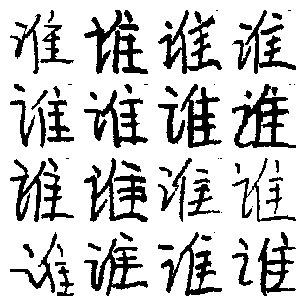 谁谁谁谁
谁谁谁谁
谁谁谁谁
谁谁谁谁